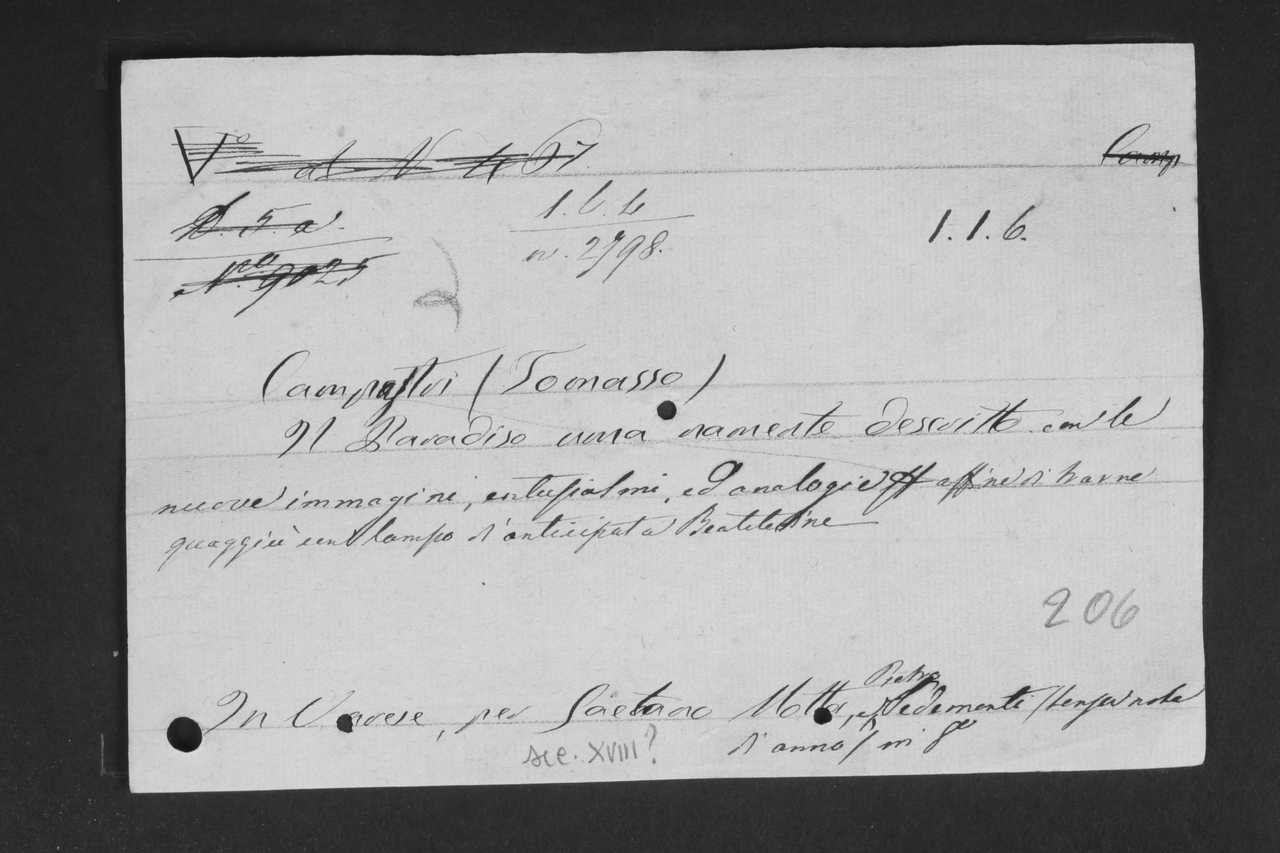 V.º al N 467
Camp
D. 5. a.
1. 6. 4
1. 1. 6.
N.ro 9025
n. 2798.
Campastri (Tomasso)
Il Paradiso umanamente descritto con le
nuove immagini, entusiasmi, ed analogie affine di trarne
quaggiù un lampo d'anticipata Beatitudine
206
In Varese, per Gaetano Motta, e Pietro Vedemonti (senza nota
d'anno) in 8º
sec. XVIII?